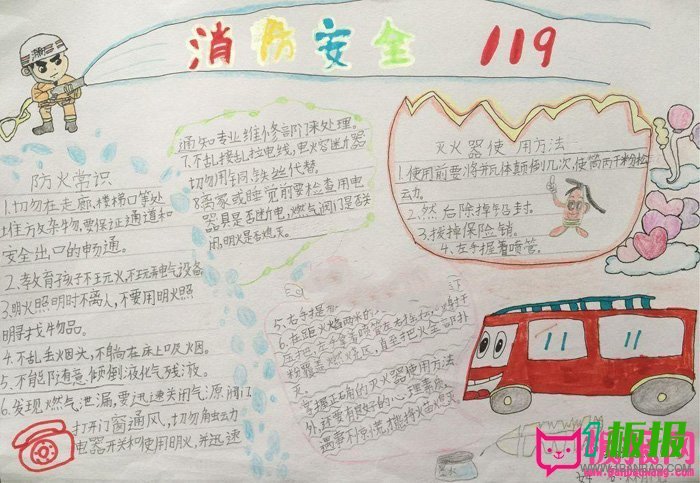 消防安全 119
防火常识
1.切勿在走廊、楼梯口等处
堆方友杂物,要保证通道和
安全出口的畅通。
2.教育孩子不玩火,不玩弄电气设备
3.明火照明时不离人,不要用明火照
明寻找物品。
4.不乱丢烟头,不躺在床上吸烟。
5.不能随意倾倒液化气残液。
6.发现燃气泄漏,要迅速关闭气源阀门
打开门窗通风,切勿触动
电器开关和使用明火,并迅速
通知专业维修部门来处理。
7.不乱接乱拉电线,电火容
切勿用铜、铁丝代替。
8.离家或睡觉前要检查用电
器具是否断电,燃气阀门是否关
闭,明火是否熄灭。
灭火器使用方法
1.使用前要将瓶体颠倒几次,使筒内干粉松
动。
2.然后除掉铅封。
3.拔掉保险销。
4.左手握着喷管。
5.右手提
6.在距火焰两米的
灭。
掌握正确的灭火器使用方法
外,还要有良好的心理素质